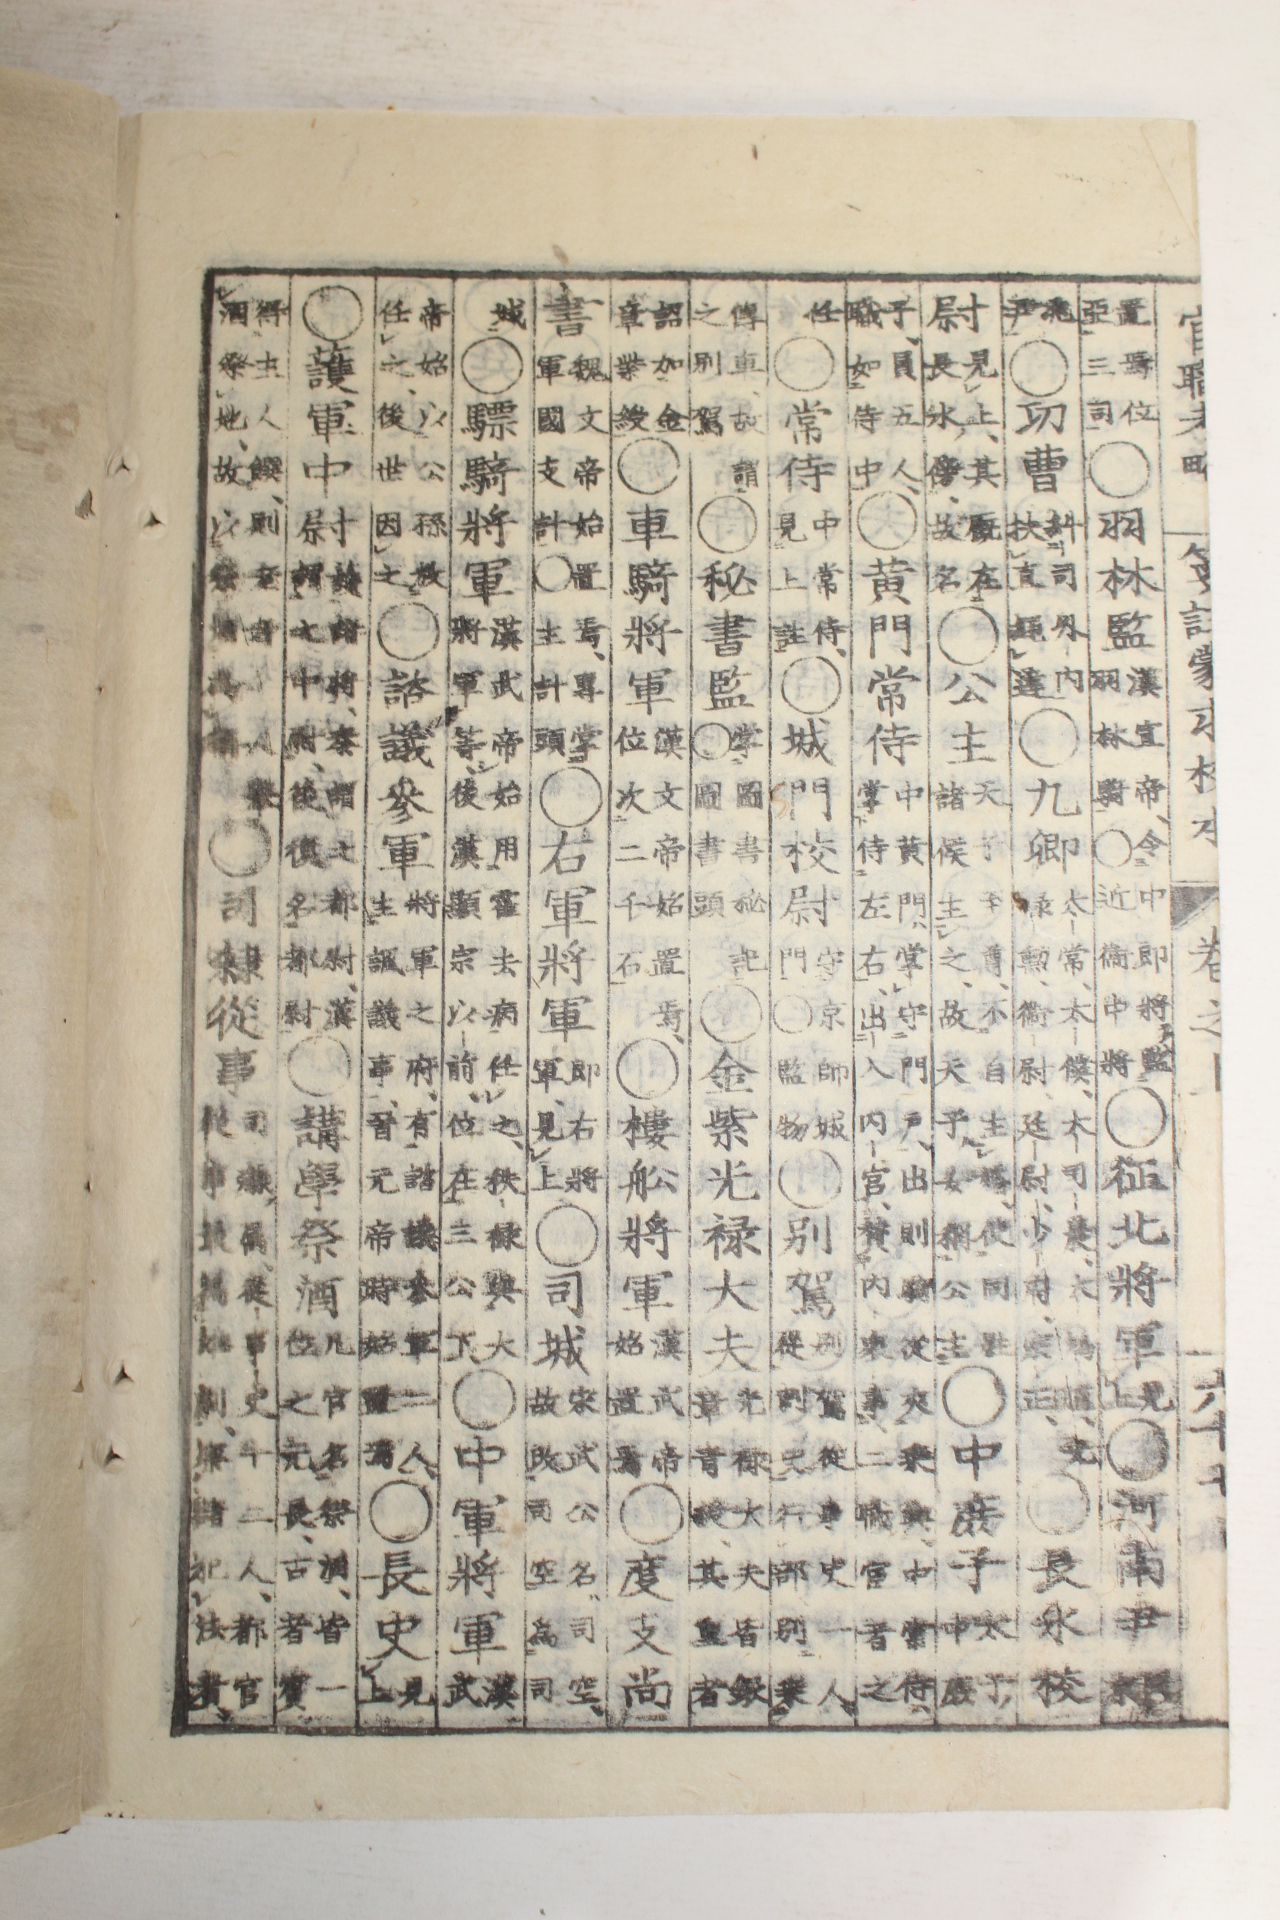 官職考略 箋註蒙求校本 卷之 六十七
置焉位亞三司○羽林監漢宣帝令中郎將監羽林騎○近衞中將○征北將軍見上○河南尹
○功曹糾司外內扶直○九卿太常太僕太司農大祿勳衞尉廷尉少府宗正○長水校
尉見上其廨在長水傍故名○公主天子至尊不自主婚使同姓諸侯主之故天子女稱公主○中庶子太子中庶
子員五人職如侍中○黃門常侍中黃門掌守門戶出則從夾乘輿中常侍掌侍左右出入內宮贊內衆事二職宦者之
任○常侍中常侍見上註○城門校尉守京師城門○監物○別駕別駕從事史一人從刺史行部別乘
傳車故謂之別駕○秘書監掌圖書秘記○圖書頭○金紫光祿大夫光祿大夫皆銀章青綬其重者
詔加金章紫綬○車騎將軍漢文帝始置焉位次二千石○樓船將軍漢武帝始置焉○度支尚
書魏文帝始置焉專掌軍國支計○主計頭○右軍將軍即右將軍見上○司城宋武公名司空故改司空爲司
城○驃騎將軍漢武帝始用霍去病任之秩祿與大將軍等後漢顯宗以前位在三公下○中軍將軍漢武
帝始以公孫敖任之後世因之○諮議參軍將軍之府有諮議參軍二人主諷議事晉元帝時始置焉○長史見上
○護軍中尉秦謂之都尉漢謂之中尉後復名都尉○講學祭酒凡官名祭酒皆一位之元長古者賓
得主人饌則老者一人舉酒祭地故以祭酒爲稱○司隸從事司隸屬從事史十二人都官